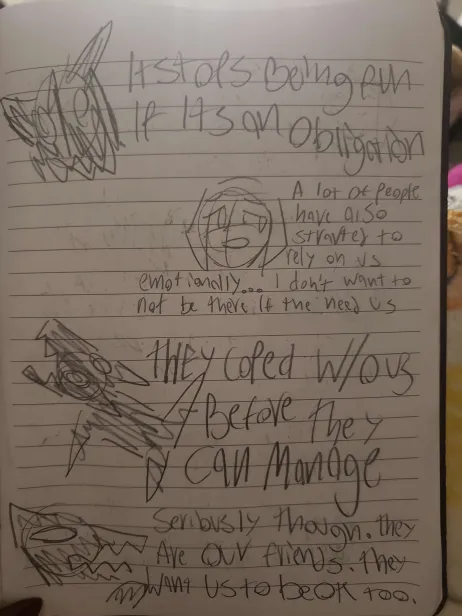 It stops Being fun
If Its an Obligation
A lot of people
have also
strarted to
rely on us
emotionally... I don't want to
not be there if the need us
THEY COPED W/OUS
Before they
Can Manage
Seribusly though. they
Are our friends. They
Want us to be OK too.